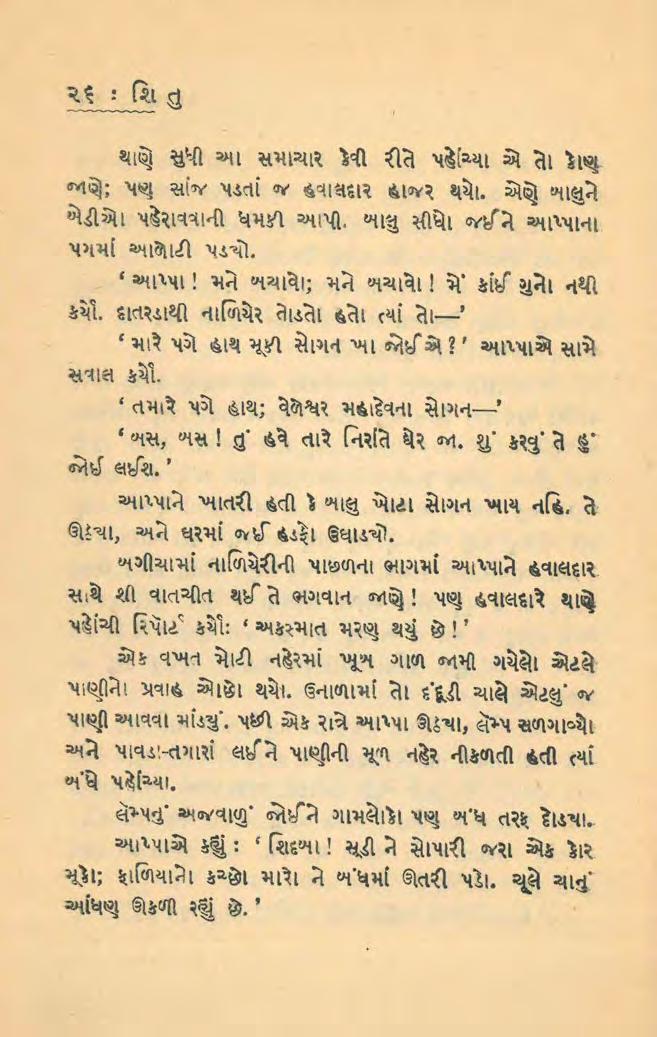 ૨૬ : શિ તુ
થાણે સુધી આ સમાચાર કેવી રીતે પહોંચ્યા એ તો કોણ
જાણે; પણ સાંજ પડતાં જ હવાલદાર હાજર થયો. એણે બાલુને
બેડીઓ પહેરાવવાની ધમકી આપી. બાલુ સીધો જઈને આપ્પાના
પગમાં આળોટી પડ્યો.
‘ આપ્પા ! મને બચાવો; મને બચાવો ! મેં કાંઈ ગુનો નથી
કર્યો. દાતરડાથી નાળિયેર તોડતો હતો ત્યાં તો—’
‘ મારે પગે હાથ મૂકી સોગન ખા જોઈએ ? ’ આપ્પાએ સામે
સવાલ કર્યો.
‘ તમારે પગે હાથ; વેળેશ્વર મહાદેવના સોગન—’
‘ બસ, બસ ! તું હવે તારે નિરાંતે ઘેર જા. શું કરવું તે હું
જોઈ લઈશ. ’
આપ્પાને ખાતરી હતી કે બાલુ ખોટા સોગન ખાય નહિ. તે
ઊઠ્યા, અને ઘરમાં જઈ હડફો ઉઘાડ્યો.
બગીચામાં નાળિયેરીની પાછળના ભાગમાં આપ્પાને હવાલદાર
સાથે શી વાતચીત થઈ તે ભગવાન જાણે ! પણ હવાલદારે થાણે
પહોંચી રિપૉર્ટ કર્યો: ‘ અકસ્માત મરણ થયું છે ! ’
એક વખત મોટી નહેરમાં ખૂબ ગાળ જામી ગયેલો એટલે
પાણીનો પ્રવાહ ઓછો થયો. ઉનાળામાં તો દંદૂડી ચાલે એટલું જ
પાણી આવવા માંડ્યું. પછી એક રાત્રે આપ્પા ઊઠ્યા, લૅમ્પ સળગાવ્યો
અને પાવડા-તગારાં લઈને પાણીની મૂળ નહેર નીકળતી હતી ત્યાં
બંધે પહોંચ્યા.
લૅમ્પનું અજવાળું જોઈને ગામલોકો પણ બંધ તરફ દોડ્યા.
આપ્પાએ કહ્યું : ‘ શિદબા ! સૂડી ને સોપારી જરા એક કોર
મૂકો; ફાળિયાનો કચ્છો મારો ને બંધમાં ઊતરી પડો. ચૂલે ચાનું
આંધણ ઊકળી રહ્યું છે. ’